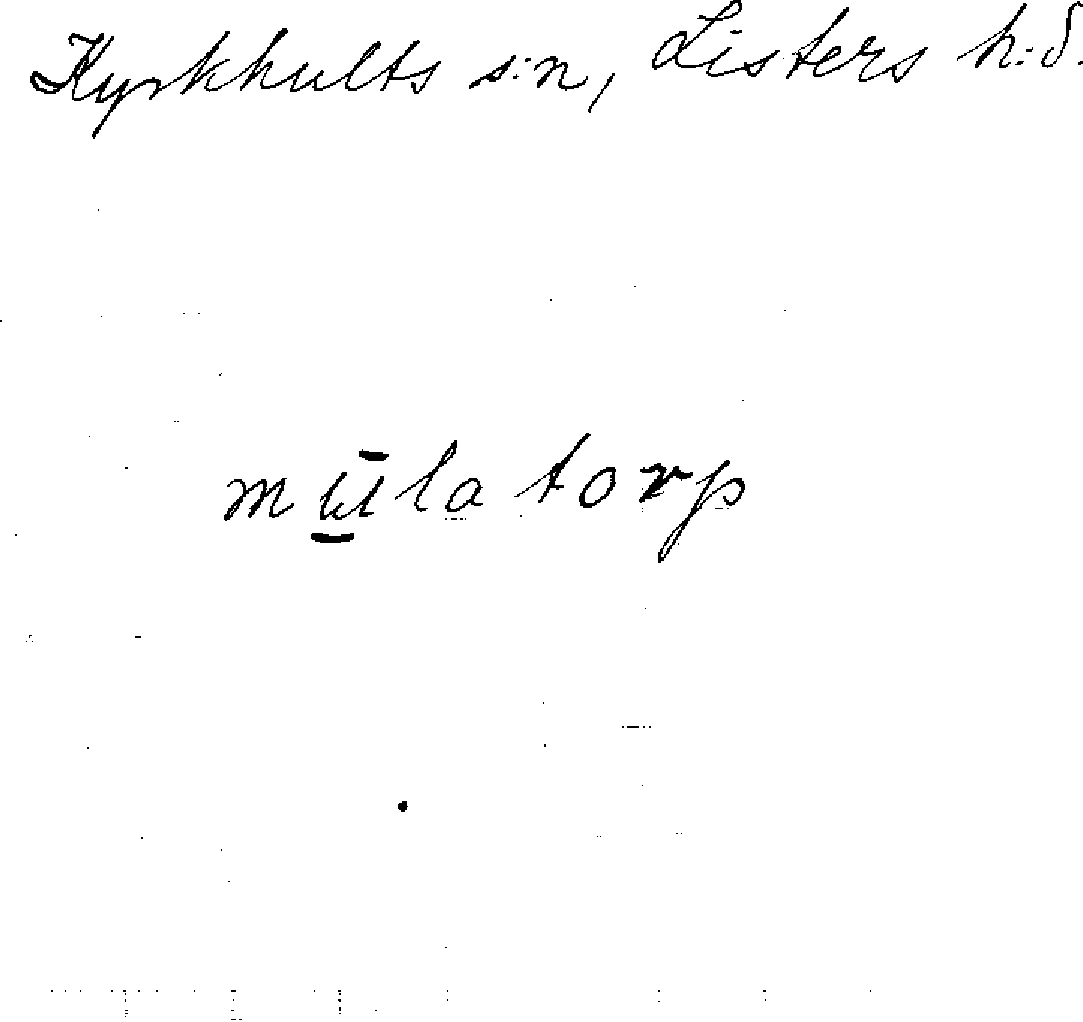 Kyrkhults s:n, Listers h:d.
mūla torp